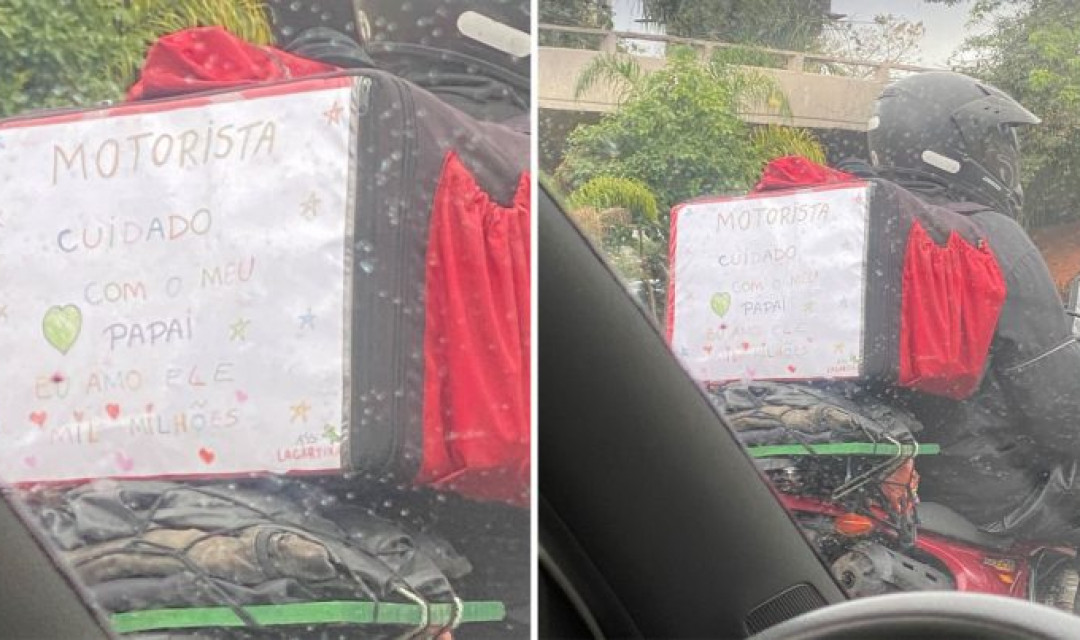 MOTORISTA
CUIDADO
COM O MEU
PAPAI
EU AMO ELE
MIL MILHÕES
ASS
LAGARTINHA
MOTORISTA
CUIDADO
COM O MEU
PAPAI
EU AMO ELE
MIL MILHÕES